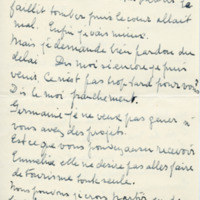 faillit tomber puis le cœur allait
mal. Enfin je vais mieux.
Mais je demande bien pardon du
délai. Dis moi si encore je puis
venir. Ce n'est pas trop tard pour vous?
Dis le moi franchement.
Germaine je ne veux pas gêner si
vous avez des projets!
Est ce que vous pouvez aussi recevoir
elle ne désire pas aller faire
de tourisme toute seule.
Nous pouvons je crois partir